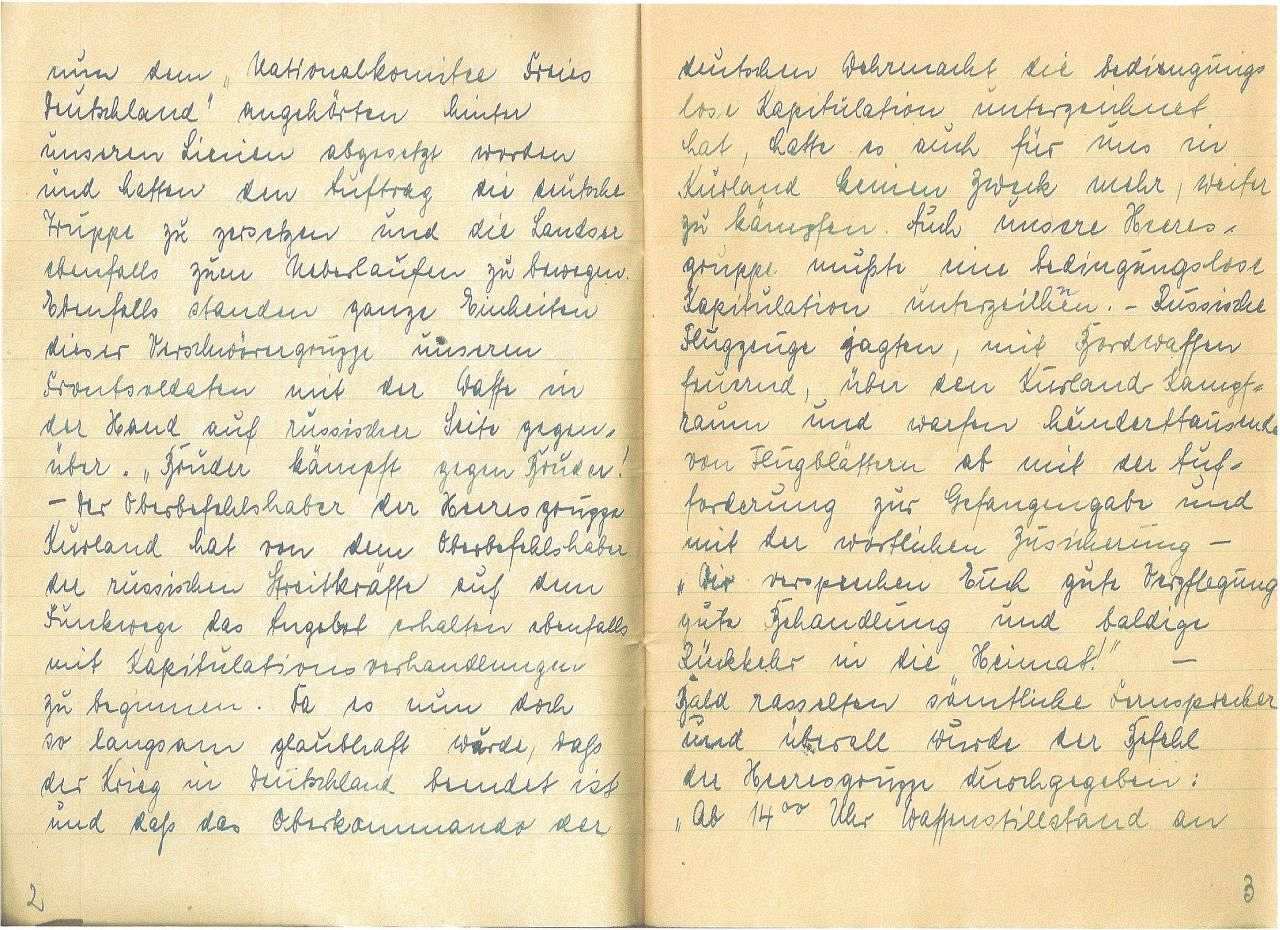 nun dem „Nationalkomitee Freies
Deutschland" angehörten hinter
unseren Linien abgesetzt worden
und hatten den Auftrag die deutsche
Truppe zu zersetzen und die Landser
ebenfalls zum Ueberlaufen zu bewegen.
Ebenfalls standen ganze Einheiten
dieser Verschwörergruppe unseren
Frontsoldaten mit der Waffe in
der Hand auf russischer Seite gegen-
über. „Bruder kämpft gegen Bruder!
– Der Oberbefehlshaber der Heeresgruppe
Kurland hat von dem Oberbefehlshaber
der russischen Streitkräfte auf dem
Funkwege das Angebot erhalten ebenfalls
mit Kapitulationsverhandlungen
zu beginnen. Da es nun doch
so langsam glaubhaft wurde, daß
der Krieg in Deutschland beendet ist
und daß das Oberkommando der
2
deutschen Wehrmacht die bedingungs
lose Kapitulation unterzeichnet
hat, hatte es auch für uns in
Kurland keinen Zweck mehr, weiter
zu kämpfen. Auch unsere Heeres-
gruppe mußte eine bedingungslose
Kapitulation unterzeichnen. – Russische
Flugzeuge jagten, mit Bordwaffen
feuernd, über den Kurland-Kampf-
raum und warfen hunderttausende
von Flugblättern ab mit der Auf-
forderung zur Gefangengabe und
mit der wörtlichen Zusicherung –
„Wir versprechen Euch gute Verpflegung
gute Behandlung und baldige
Rückkehr in die Heimat!" –
Bald rasselten sämtliche Fernsprecher
und überall wurde der Befehl
der Heeresgruppe durchgegeben:
„Ab 14⁰⁰ Uhr Waffenstillstand an
3